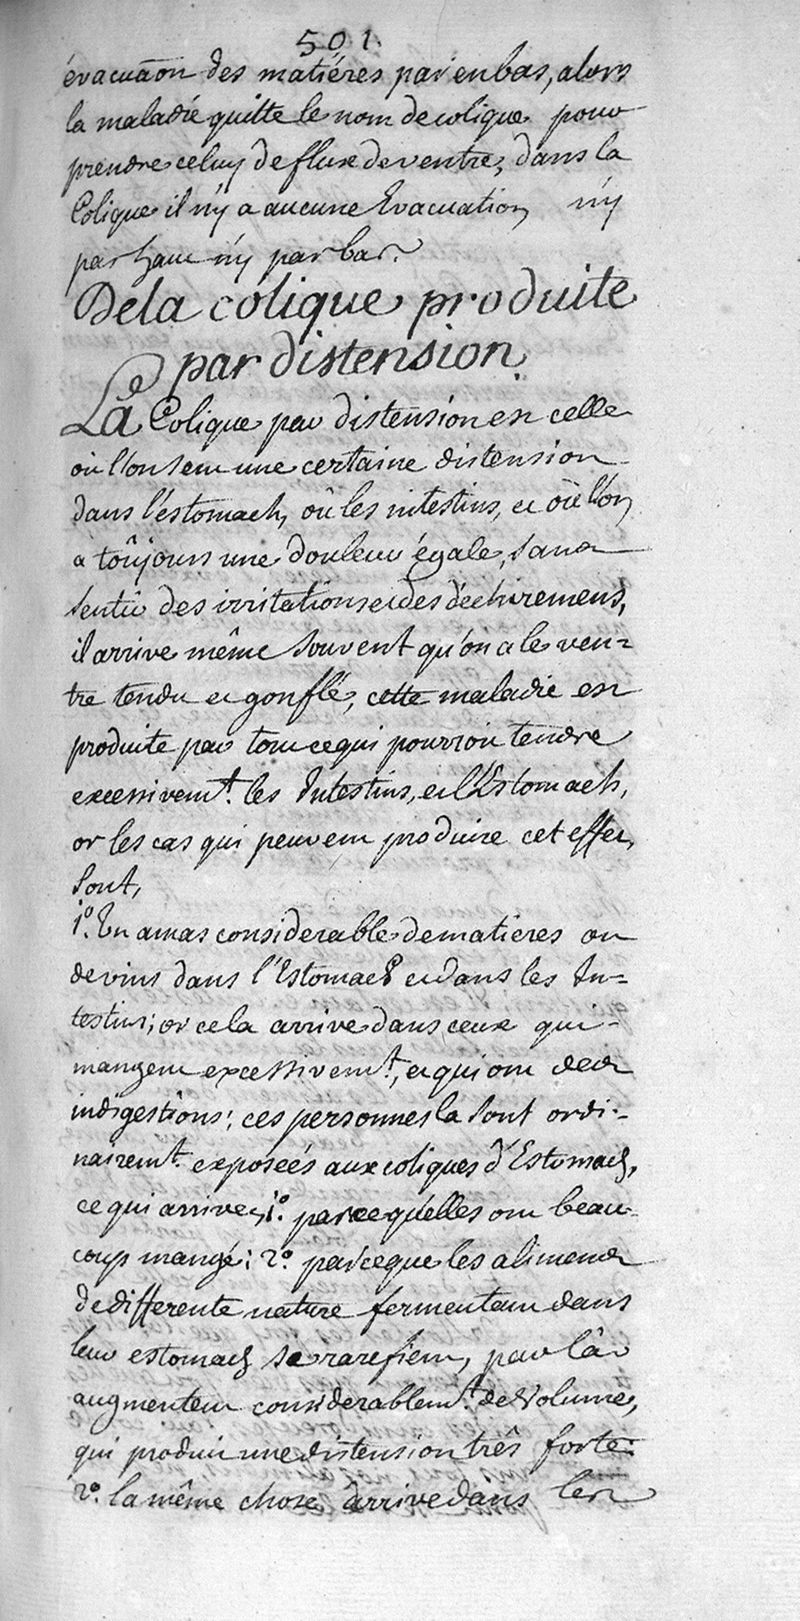 501.
évacuãon des matiéres par en bas, alors
la maladie quitte le nom de colique pour
prendre celuy de flux de ventre, dans la
Colique il n'y a aucune Evacuation n'y
par haut n'y par bas.
De la colique produite
par distension.
La Colique par distension est celle
où l'on sent une certaine distension
dans l'éstomach, où les intestins, et où l'on
a toûjours une douleur égale, sans
sentir des irritations et des déchiremens,
il arrive même souvent qu'on a le ven=
tre tendu et gonflé, cette maladie est
produite par tout ce qui pourroit tendre
excessivemt. les Intestins, et l'Estomach,
or les cas qui peuvent produire cet effet,
sont,
1º. Un amas considerable de matieres ou
de vins dans l'Estomach et dans les In=
testins; or cela arrive dans ceux qui
mangent excessivemt, et qui ont des
indigestions; ces personnes la sont ordi=
nairemt. exposées aux coliques d'Estomach,
ce qui arrive, 1º. parce qu'elles ont beau=
coup mangé; 2º. parce que les alimens
de differente nature fermentent dans
leur estomach se rarefient, par là
augmentent considerablemt. de volume,
qui produit une distension três forte.
2º. la même chose arrive dans les